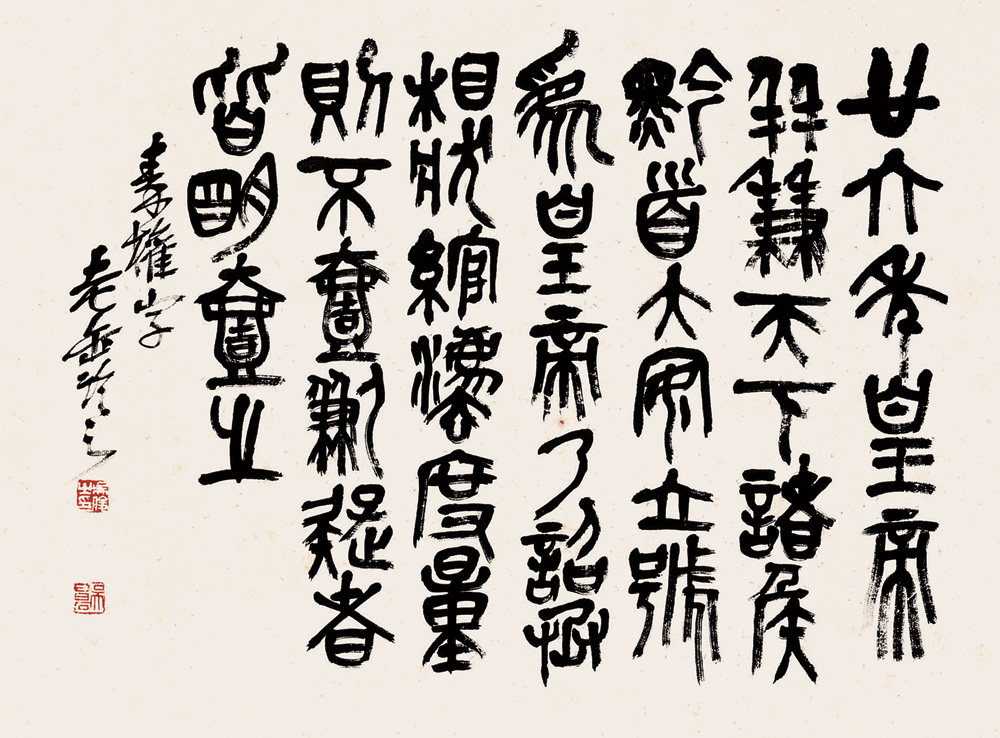 廿六年皇帝
并兼天下諸侯
黔首大安立號
為皇帝乃詔丞
相狀綰灋度量
則不壹歉疑者
皆明壹之
秦權字
老缶之